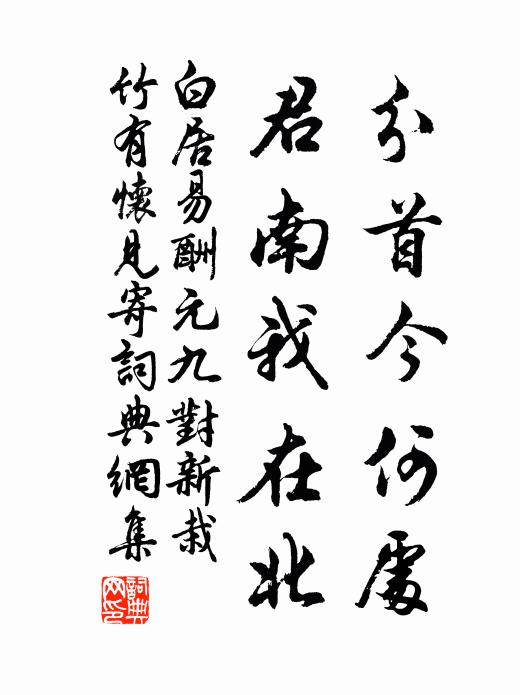 分首今何處
君南我在北
白居易酬元九對新栽
竹有懷見寄詞典網集
詞典網印